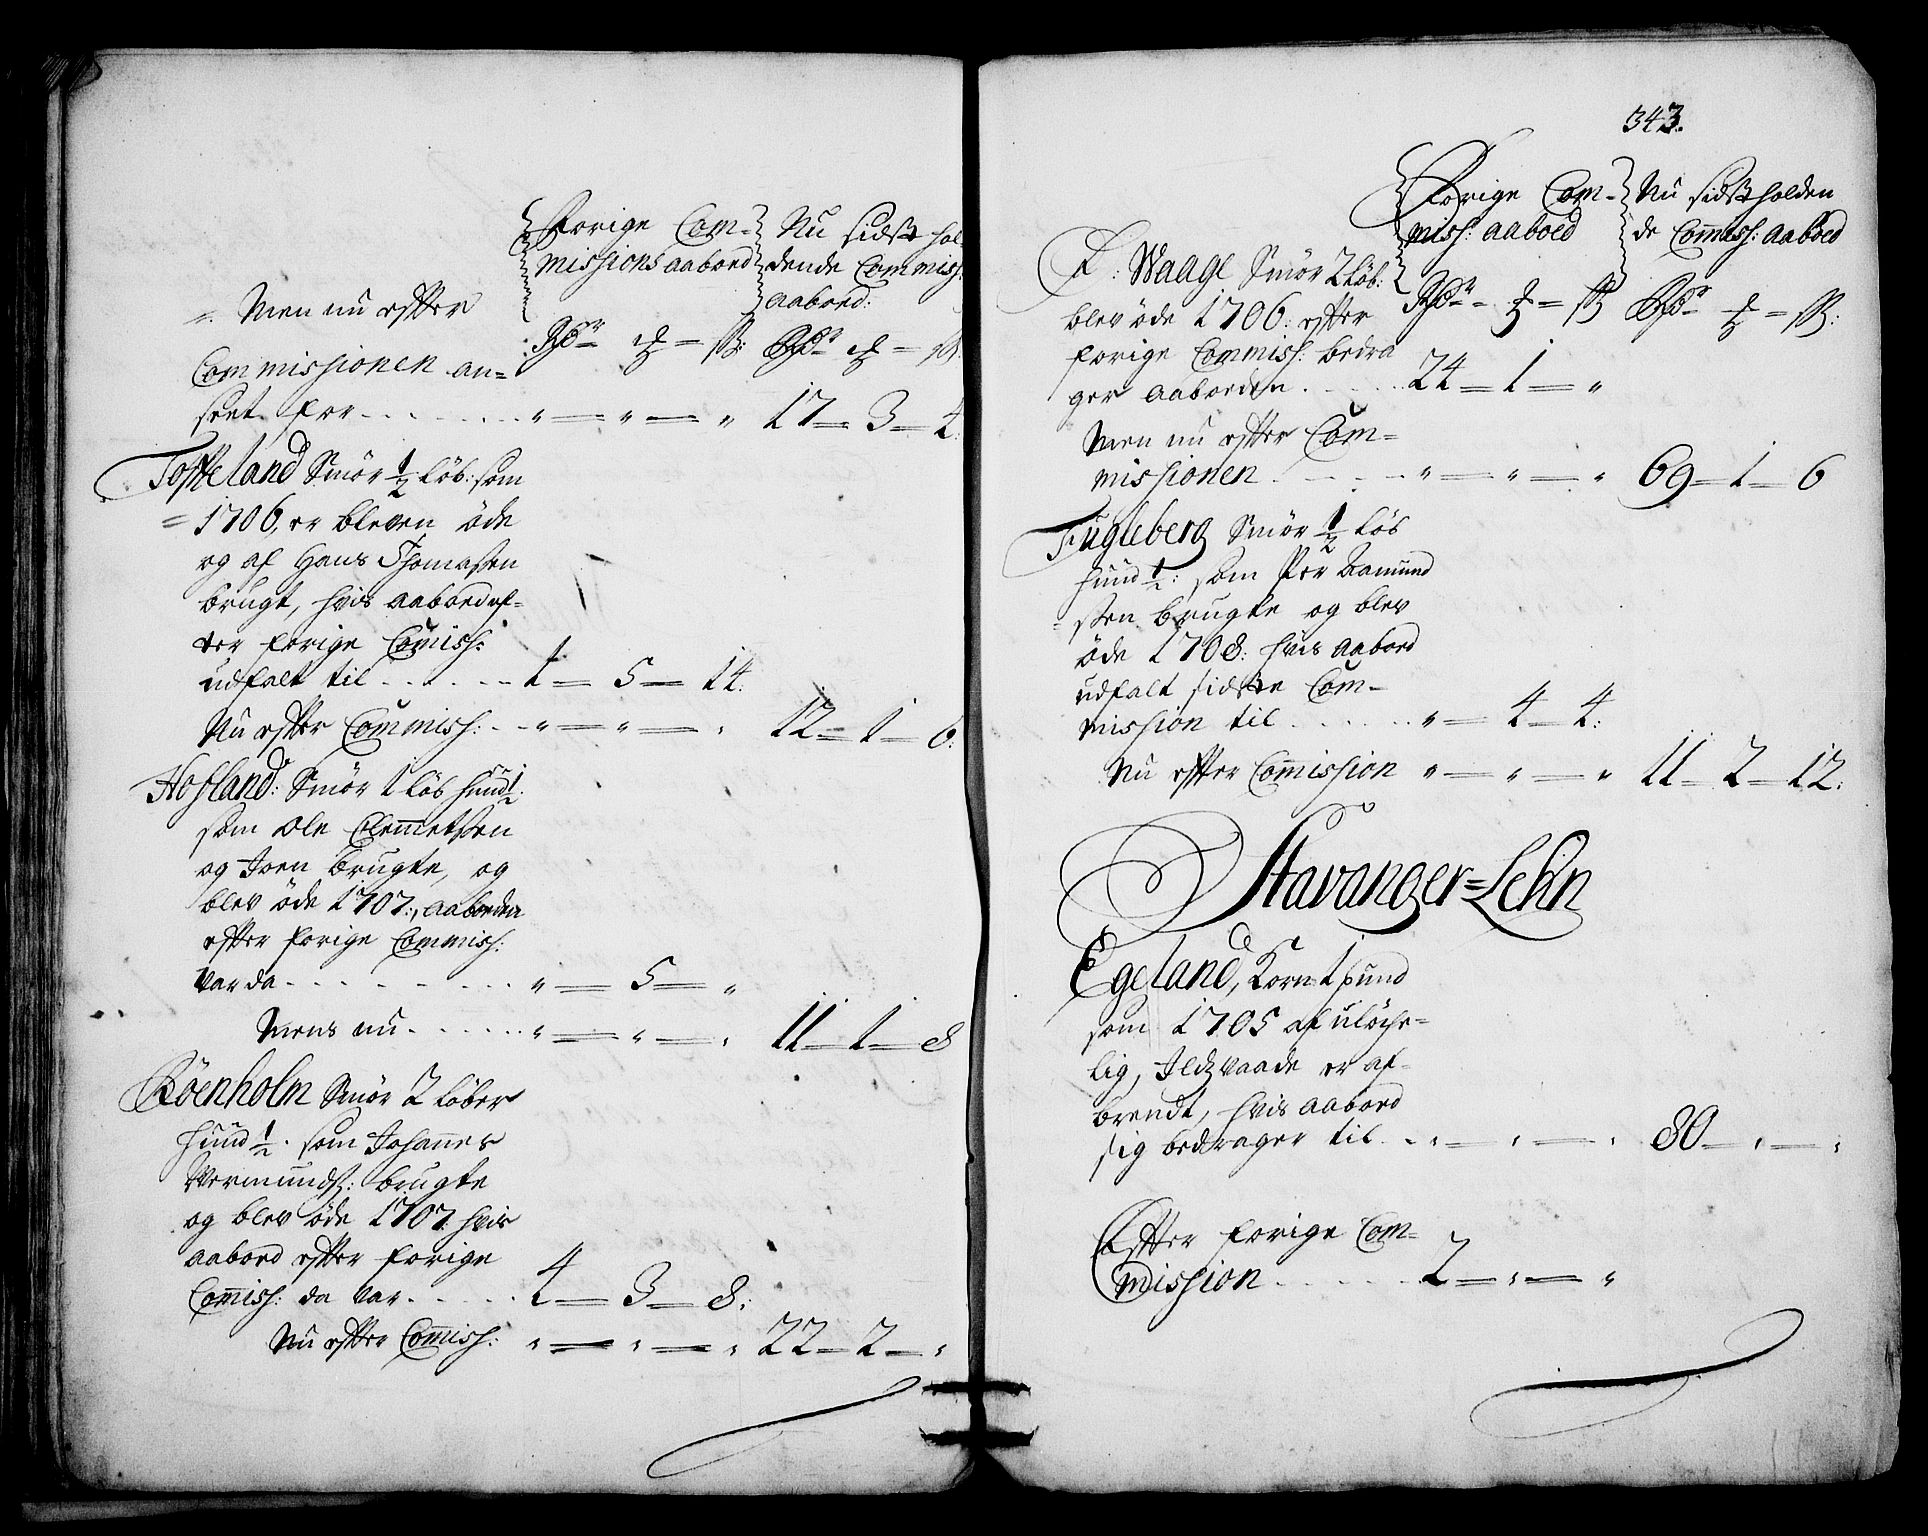 Forige Com-
missions aaboed
Nu sidst hol
dende Commiss:
aaboed:
Men nu efter
Rdr = ß: Rdr = ß
Commissionen an=
seet for - - - " = " = " 17 = 3 = 4:
Toffteland Smör 1/2 löb: som
= 1706, er bleven öde
og af Hans Thomassen
brugt, hvis aaboed ef-
ter forige Comiss:
udfalt til - - - 1 = 5 = 14:
Nu efter Commiss: - - " = " = " 12 = 1 = 6:
Hofland: Smör 1 löb huud 1/2:
som Ole Clemmetssen
og Joen brugte, og
blev öde 1707:, aaboeden
efter forige Commiss:
var da - - - " = 5 = "
Mens nu - - - " = " = " 11 = 1 = 8
Röenholm Smör 2 löber
huud 1/2. som Johannes
Vermunds: brugte
og blev öde 1707. hvis
aaboed efter forige
Comiss: da var - - - 4 = 3 = 8:
Nu efter Comiss: " = " = " 22 = 2 = "
343.
Forige Com-
miss: aaboed
Nu sidst holden
de Comiss: aaboed
Waage Smör 2 löb:
Rdr = ß Rdr = ß:
blev öde 1706: efter
forige Commiss: bedra
ger aaboeden - - - 24 = 1 = "
Men nu efter Com=
missionen - - - " = " = " 69 = 1 = 6
Fugleberg Smör 1/2 löb
huud 1/2: som Per Aamund
ssen brugte og blev
öde 1708: hvis aaboed
udfalt sidste Com-
mission til - - - " = 4 = 4:
Nu efter Comission " = " = " 11 = 2 = 12:
Stavanger=Lehn
Egeland, Korn 1 pund
som 1705 af ulöche=
lig, Ildzvaade er af-
brendt, hvis aaboed
sig bedrager til - - " = " = " 80 = " = "
Efter forige Com=
mission - - - 2 = " = "